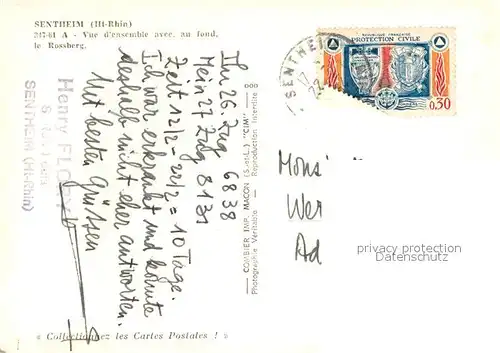 SENTHEIM (Ht-Rhin)
317-61 A - Vue d'ensemble avec, au fond,
le Rossberg.
Ihr 26. Zug 6838
Mein 27 Zug 8131
Zeit 12/2 - 22/2 = 10 Tage.
Ich war erkrankt und konnte
deshalb nicht eher antworten.
Mit besten Grüssen
Henry
SENTHEIM (Ht-Rhin)
COMBIER IMP. MACON (S.-et-L.) "CIM"
Photographie Véritable - Reproduction Interdite
« Collectionnez les Cartes Postales ! »
SENTHEIM
REPUBLIQUE FRANÇAISE
PROTECTION CIVILE
0,30
Mons
Wer
Ad
privacy protection
Datenschutz